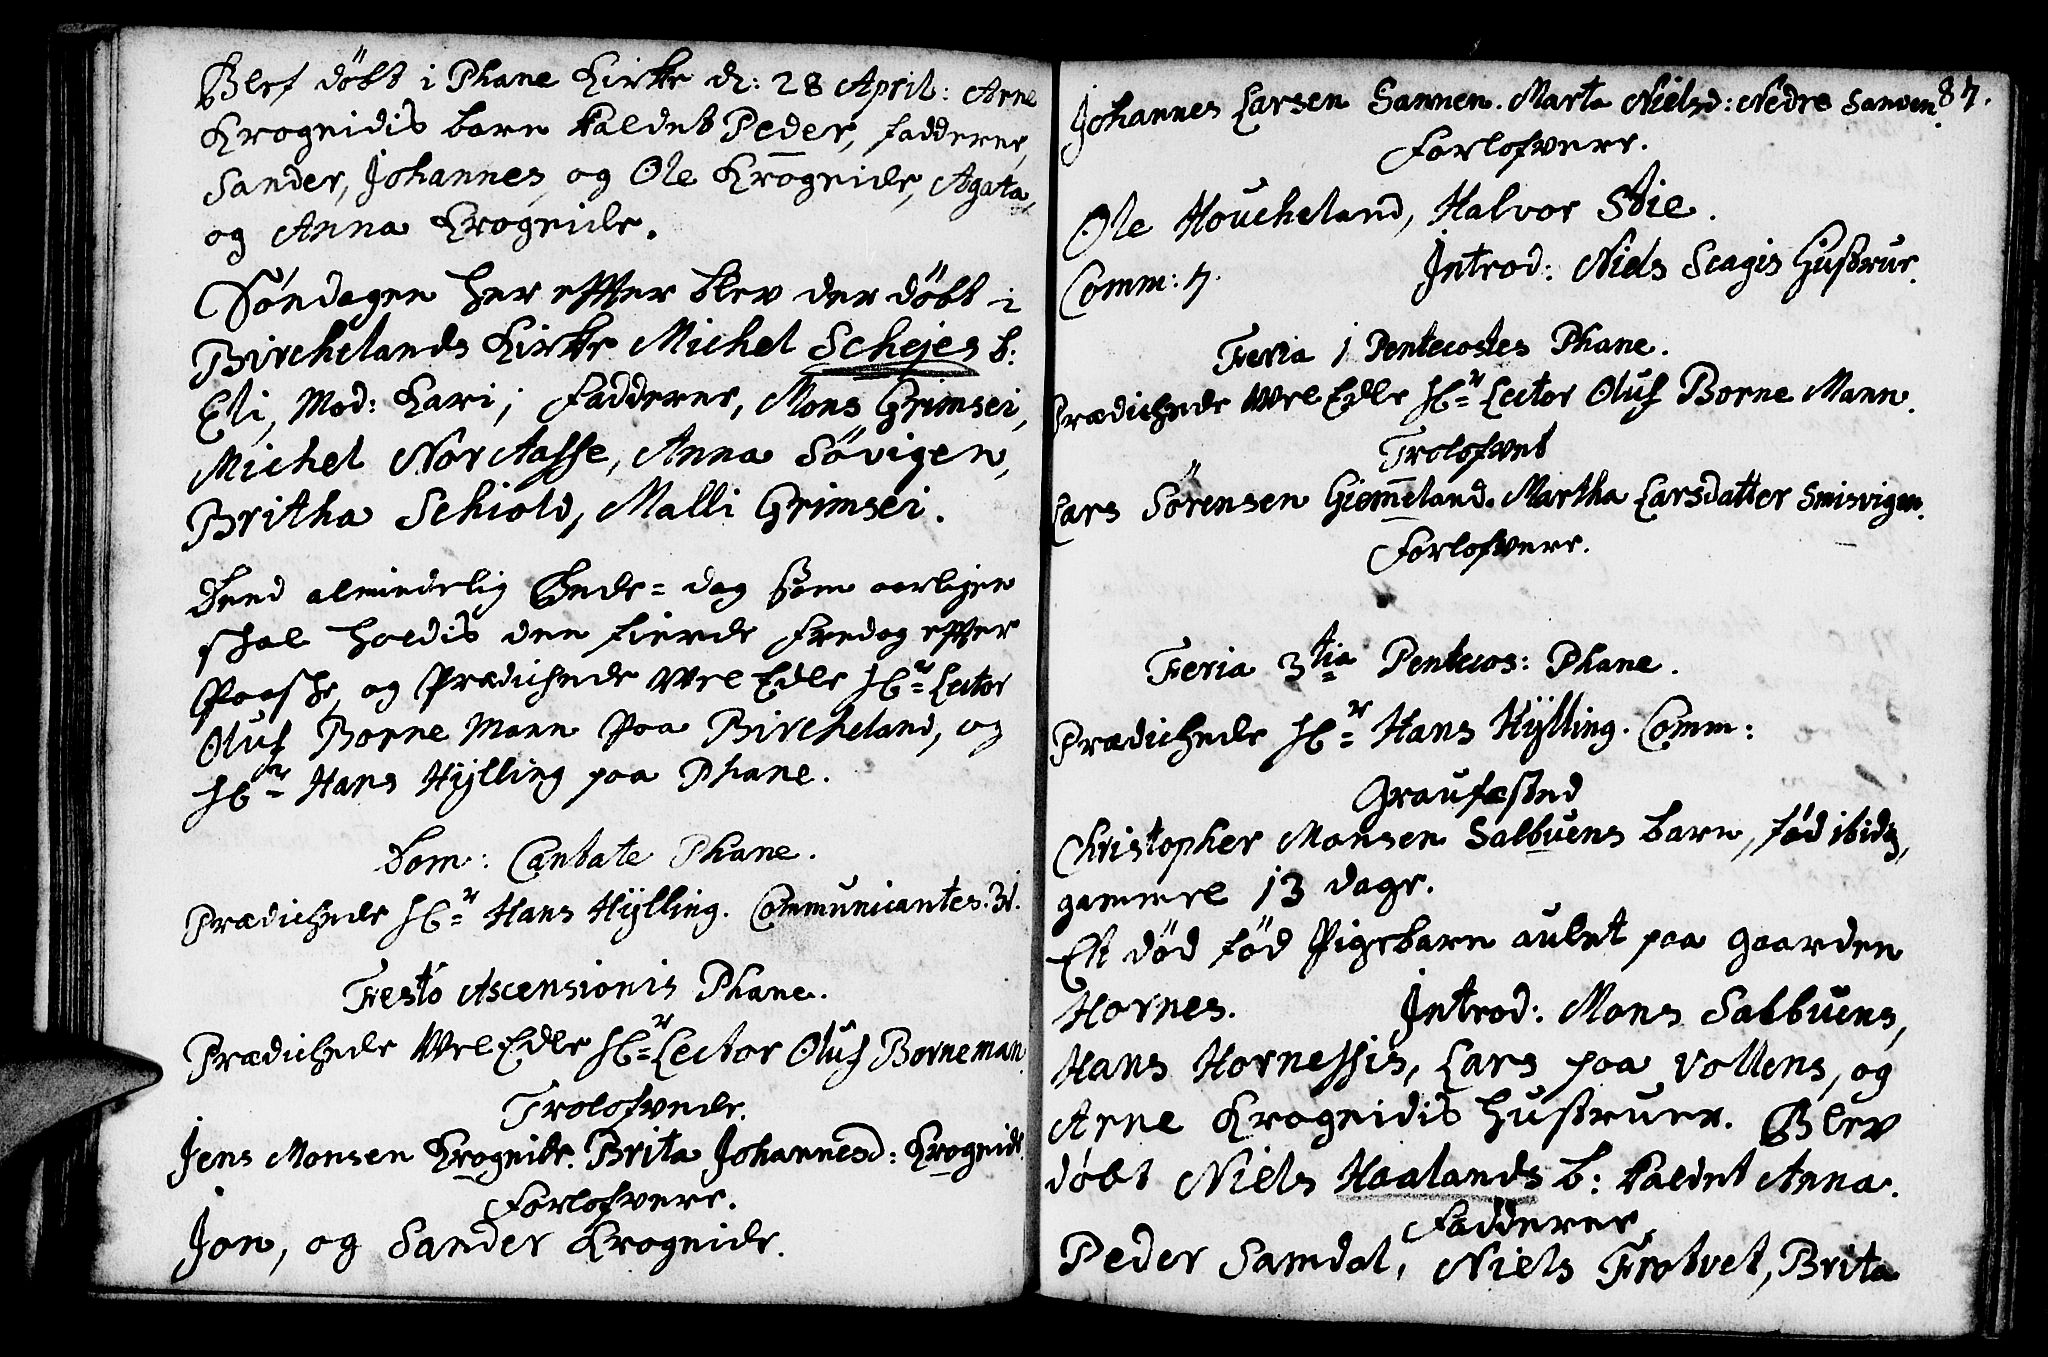 Blef döbt i Phane Kirke d: 28 April: Arne
Krogeidis barn kaldet Peder, fadderne,
Sander, Johannes, og Ole Krogeide, Agata,
og Anna Krogeide.
Söndagen her effter blev der döbt i
Birchelands Kirke Michel Schejes b:
Eli, Mod: Kari; Fadderne, Mons Grimsei,
Michel Nor Aasse, Anna Sövigen,
Britha Schiold, Malli Grimsei.
Dend almindelig Bede=dag som aarligen
skal holdis den fierde Fredag effter
Paaske, og Prædichede Wel Edle Hr Lector
Oluf Borne Mann paa Bircheland, og
Hr Hans Hÿlling paa Phane.
Dom: Cantate Phane.
Prædichede Hr Hans Hÿlling. Communicantes. 31.
Festo Ascensionis Phane.
Prædichede Wel Edle Hr Lector Oluf Borneman
Trolofvede.
Jens Monsen Krogeide. Brita Johannesd: Krogeide.
Forlofvere.
Jon, og Sander Krogeide.
87.
Johannes Larsen Sannen. Marta Nielsd: Nedre Sannen.
Forlofvere.
Ole Houcheland, Halvor Stie.
Comm: 7. Introd: Niels Scagis Hustrue.
Feria 1 Pentecostes Phane.
Prædichede Wel Edle Hr Lector Oluf Borne Mann.
Trolofvet
Lars Sörensen Giemeland. Martha Larsdatter Smisvigen.
Forlofvere.
Feria 3tia Pentecos: Phane.
Prædichede Hr Hans Hÿlling. Comm:
Graufæsted
Christopher Monsen Salbuens barn, föd ibid,
gammel 13 dage.
Et död föd Pigebarn aulet paa gaarden
Hornes. Introd: Mons Salbuens,
Hans Hornessis, Lars paa Vollens, og
Arne Krogeidis Hustruer. Blev
döbt Niels Haalands b: kaldet Anna.
Fadderne
Peder Samdal, Niels Frotvet, Brita